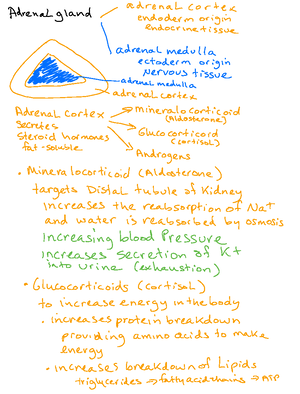 Adrenal gland
adrenal cortex
endoderm origin
endocrine tissue
adrenal medulla
ectoderm origin
nervous tissue
adrenal medulla
adrenal cortex
Adrenal Cortex
secretes
steroid hormones
fat-soluble
mineralocorticoid
(Aldosterone)
Glucocorticoid
(cortisol)
Androgens
• Mineralocorticoid (Aldosterone)
targets Distal tubule of Kidney
increases the reabsorption of Na+
and water is reabsorbed by osmosis
increasing blood Pressure
increases secretion of K+
into urine (exhaustion)
• Glucocorticoids (cortisol)
to increase energy in the body
• increases protein breakdown
providing amino acids to make
energy
• increases breakdown of Lipids
triglycerides → fatty acid chains → ATP